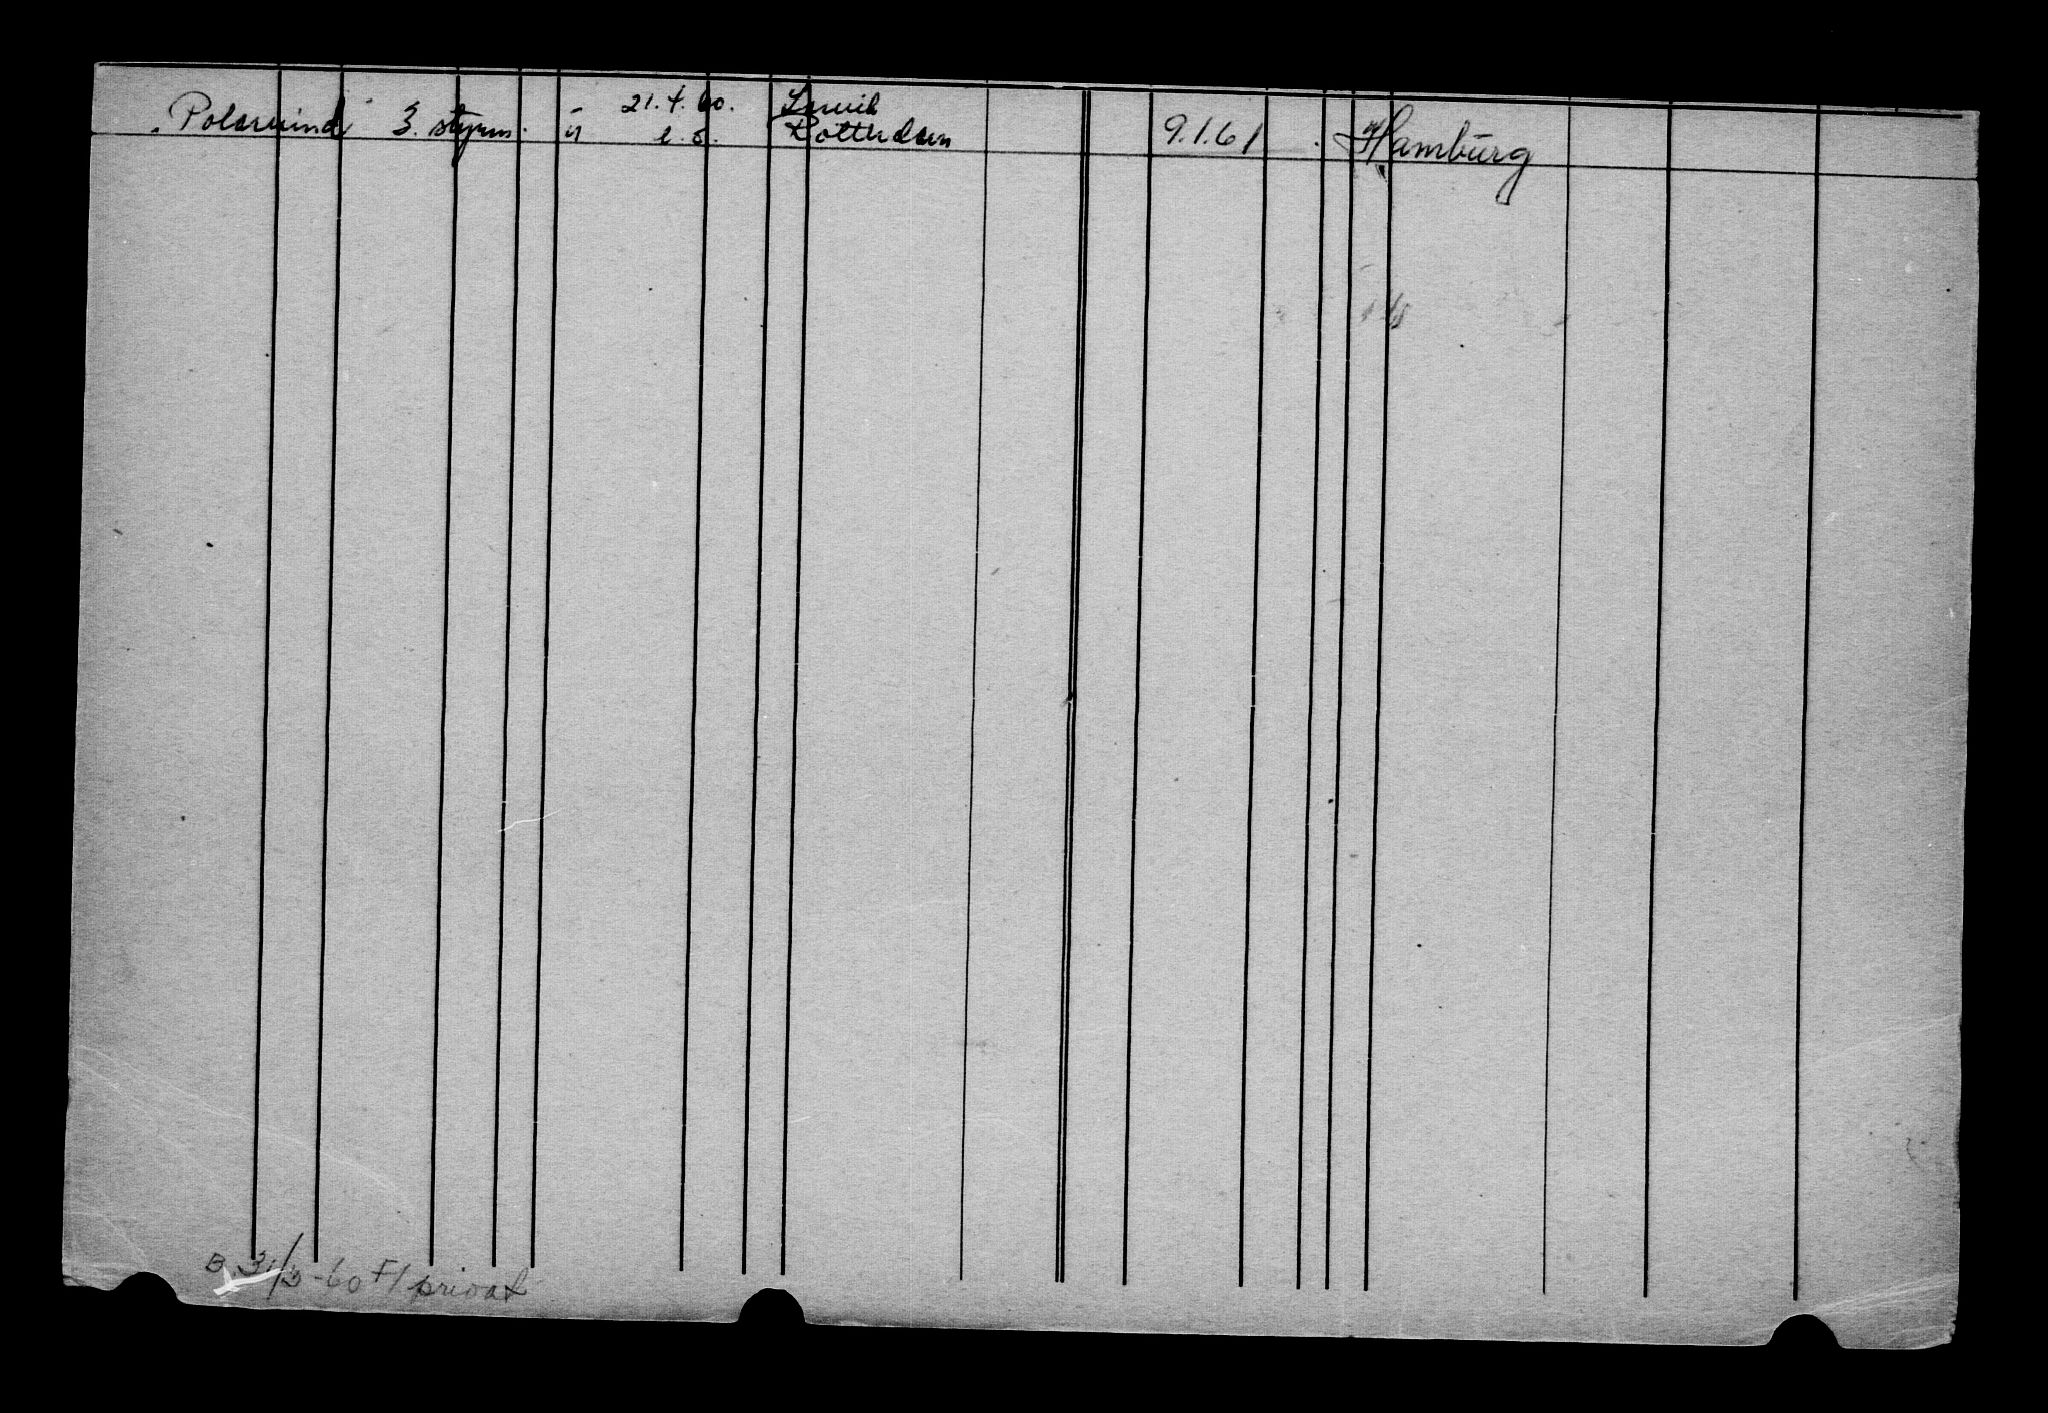 21.4.60. Larvik
Polarvind 3. styrm. u e.o. Rotterdam 9.1.61 Hamburg
B. 31/3-60 F/ privat